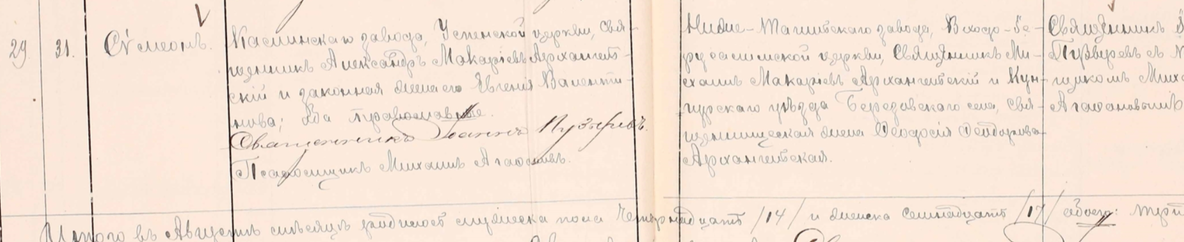 29 31. Сѵмеонъ.
Каслинскаго завода, Успенской церкви, свя-
щенникъ Александръ Макарьевъ Архангель-
скій и законная жена его Евгенія Валенти-
нова; оба православные.
Священникъ Іоаннъ Пузыревъ.
Псаломщикъ Михаилъ Агаѳоновъ.
Нижне-Тагильского завода, Входо-Іе-
русалимской церкви, Священникъ Ми-
хаилъ Макарьевъ Архангельскій и Кун-
гурского уѣзда Березовского села, свя-
щенническая жена Ѳеодосія Ѳеодорова
Архангельская.
Священникъ
Пузыревъ съ
щикомъ Миха
Агаѳоновымъ
Итого въ Августѣ мѣсяцѣ родилось мужеска пола Четырнадцать /14/ и женска семнадцать /17/ обоего